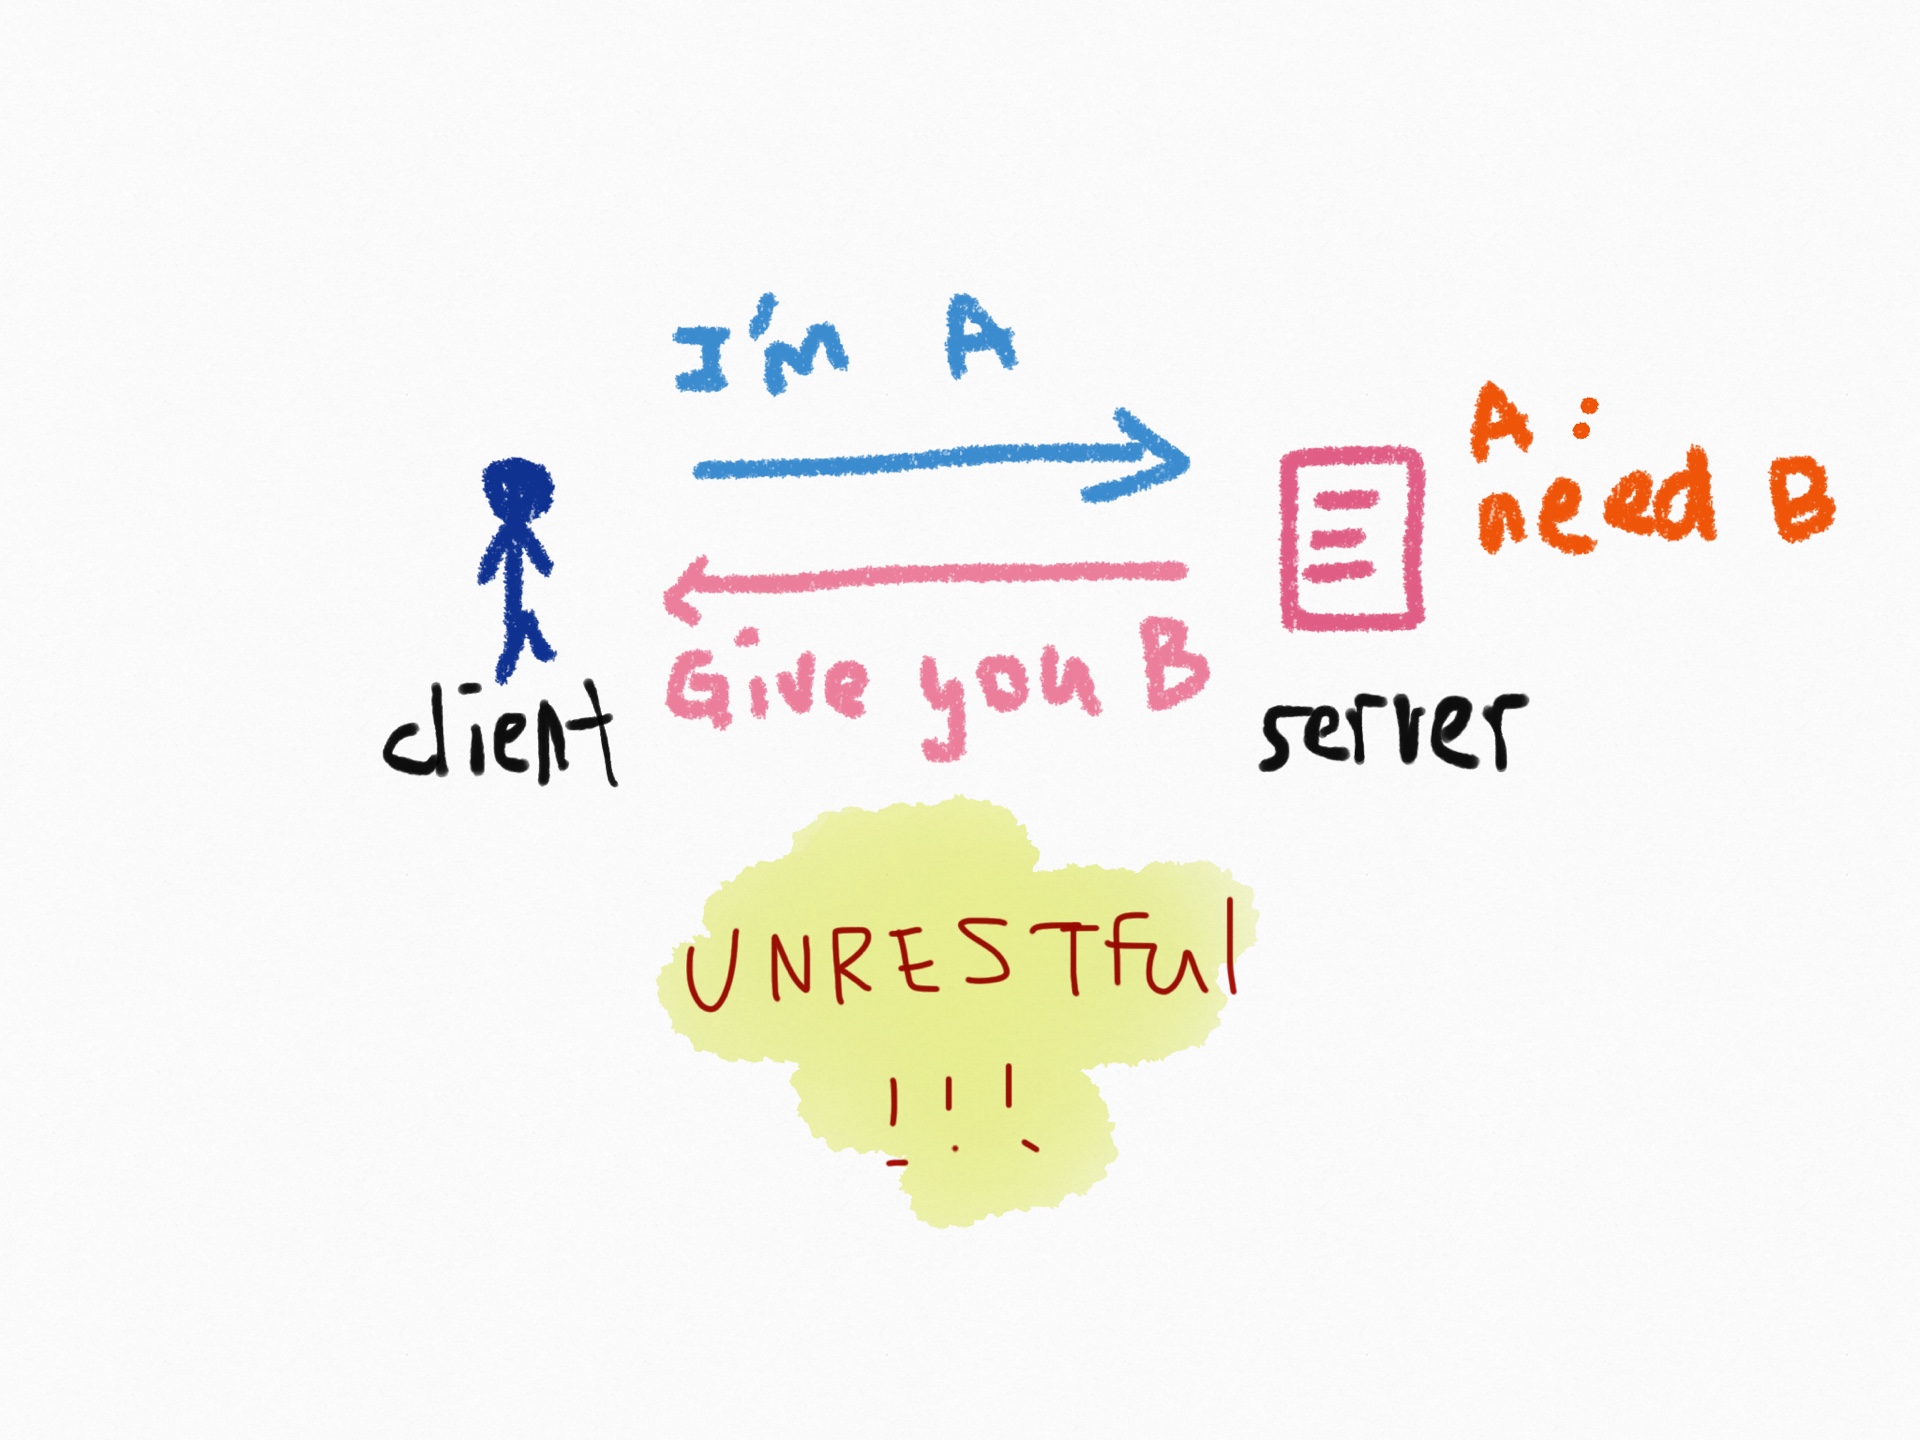 I'm A
A:
need B
Give you B
client
server
UNRESTful
!!!